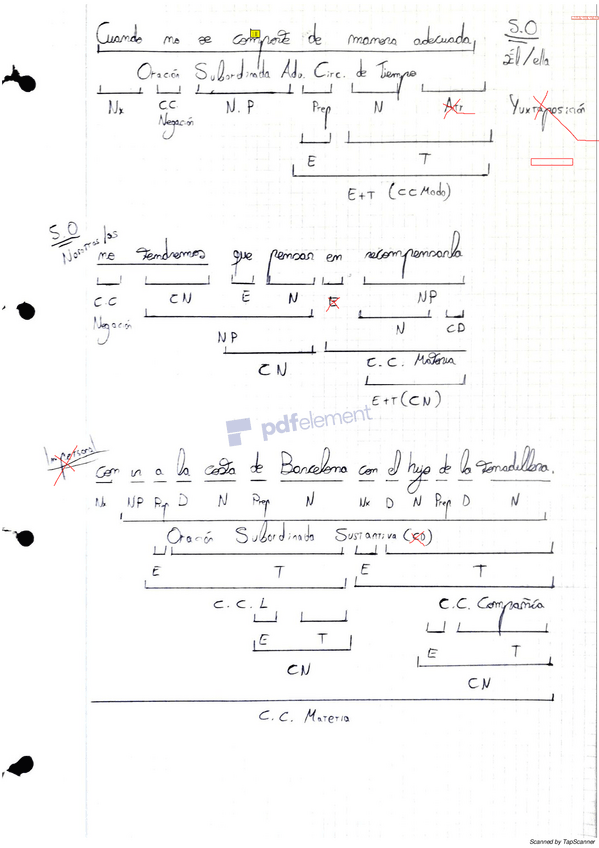 Cuando no se comporte de manera adecuada,
S.O
Él/ella
Oración Subordinada Adv. Circ. de Tiempo
Nx CC Negación N.P Prep N Atr
Yuxtaposición
E T
E+T (CC Modo)
S.O
Nosotros/as
no tendremos que pensar en recompensarla
C.C Negación CN E N E NP
N CD
NP
CN
C.C. Materia
E+T (CN)
pdfelement
Impersonal
con ir a la costa de Barcelona con el hijo de la Tonadillera.
Nx NP Prep D N Prep N Nx D N Prep D N
Oración Subordinada Sustantiva (CD)
E T E T
C.C.L C.C. Compañía
E T E T
CN CN
C.C. Materia
Scanned by TapScanner